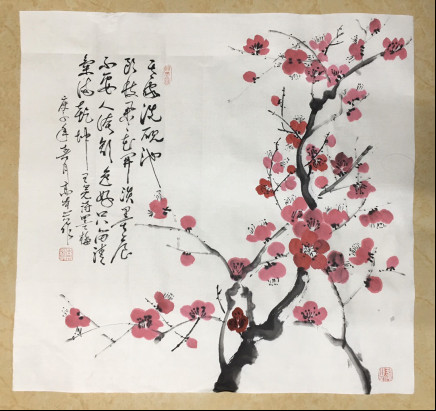 吾家洗砚池
头枝朵朵花开淡墨痕
不要人夸颜色好只留清
气满乾坤 王冕诗墨梅
庚子年春月高作